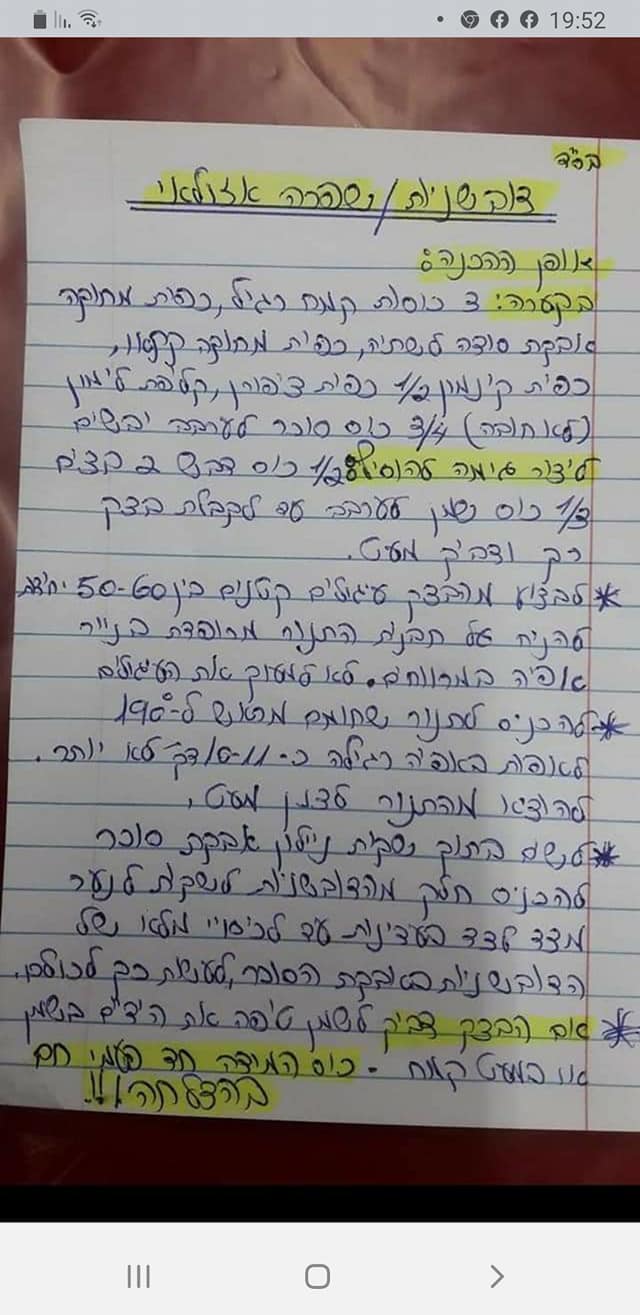 19:52
בס"ד
דובשניות / שפרה אזולאי
אופן ההכנה:
בקערה: 3 כוסות קמח רגיל, כפית מחוקה
אבקת סודה לשתיה, כפית מחוקה קקאו,
כפית קינמון 1/2 כפית ציפורן, קליפת לימון
(לא חובה) 3/4 כוס סוכר לערבב יבשים
ליצור גומה להוסיף 1/2 כוס דבש 2 ביצים
1/2 כוס שמן לערבב עד לקבלת בצק
רך ודביק מעט.
* לבצע מהבצק עיגולים קטנים בין 50-60 יחידות
להניח על תבנית התנור מרופדת בנייר
אפיה במרווחים. לא למעוך את העיגולים
* להכניס לתנור שחומם מראש ל-190°
לאפות באפיה רגילה כ-10-11 דק' לא יותר.
להוציא מהתנור לצנן מעט,
* לשים בתוך שקית ניילון אבקת סוכר
להכניס חלק מהדובשניות לשקית לנער
מצד לצד בעדינות עד לכיסוי מלא של
הדובשניות באבקת הסוכר, לעשות כך לכולם.
* אם הבצק דביק לשמן טיפה את הידיים בשמן
או במעט קמח - כוס המידה חד פעמי חם
בהצלחה!!!